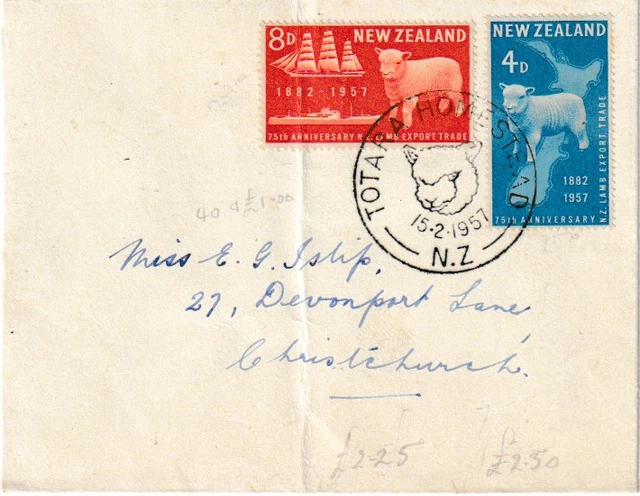 8D NEW ZEALAND
1882 - 1957
75th ANNIVERSARY N.Z. LAMB EXPORT TRADE
NEW ZEALAND
4D
1882
1957
75th ANNIVERSARY
N.Z. LAMB EXPORT TRADE
TOTARA HOMESTEAD
15·2·1957
N.Z
£1-00
Miss E. G. Islip,
27, Devonport Lane
Christchurch.
£2-25
£2-50